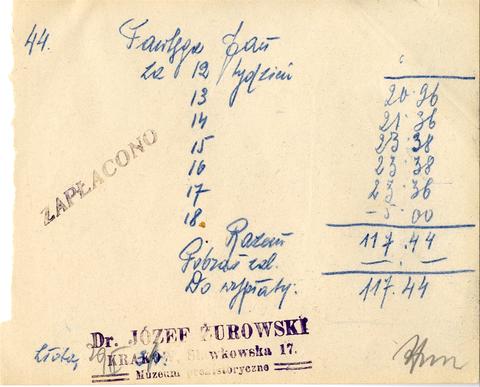 44.
Jan
za 12 tydzień
13 20.96
14 21.36
15 23.38
16 23.38
17 23.36
18. 5.00
Razem 117.44
Pobrał zal. — . —
Do wypłaty: 117.44
ZAPŁACONO
Dr. JÓZEF ŻUROWSKI
KRAKÓW, Sławkowska 17.
Muzeum prehistoryczne